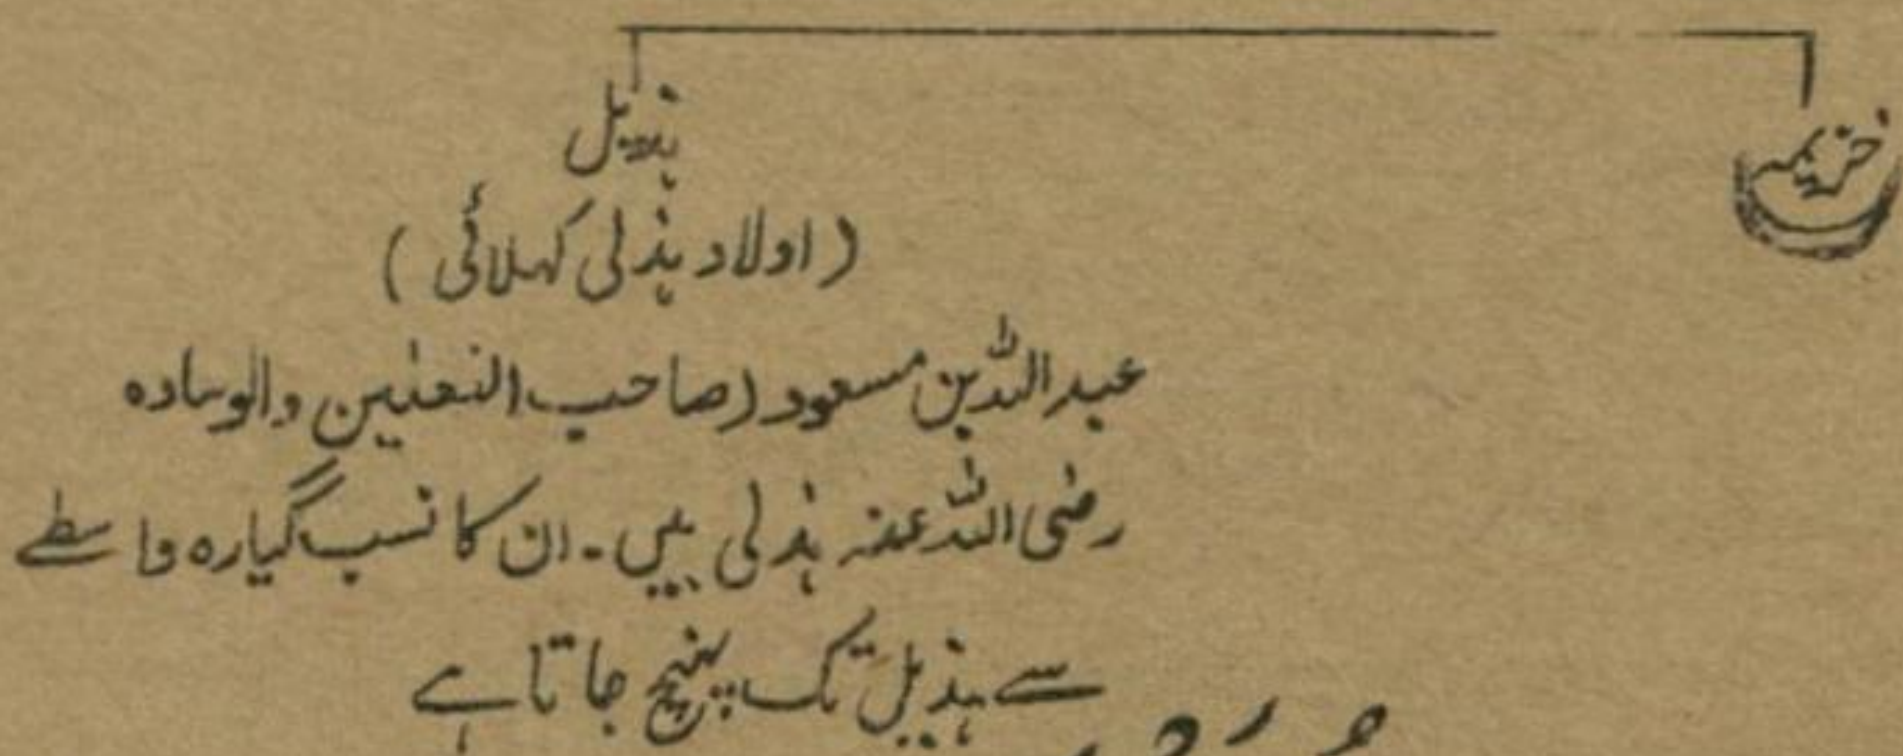 خزیمہ
ہذیل
(اولاد ہذلی کہلائی)
عبداللہ بن مسعود (صاحب النعلین والوسادہ
رضی اللہ عنہ ہذلی ہیں۔ ان کا نسب گیارہ واسطے
سے ہذیل تک پہنچ جاتا ہے